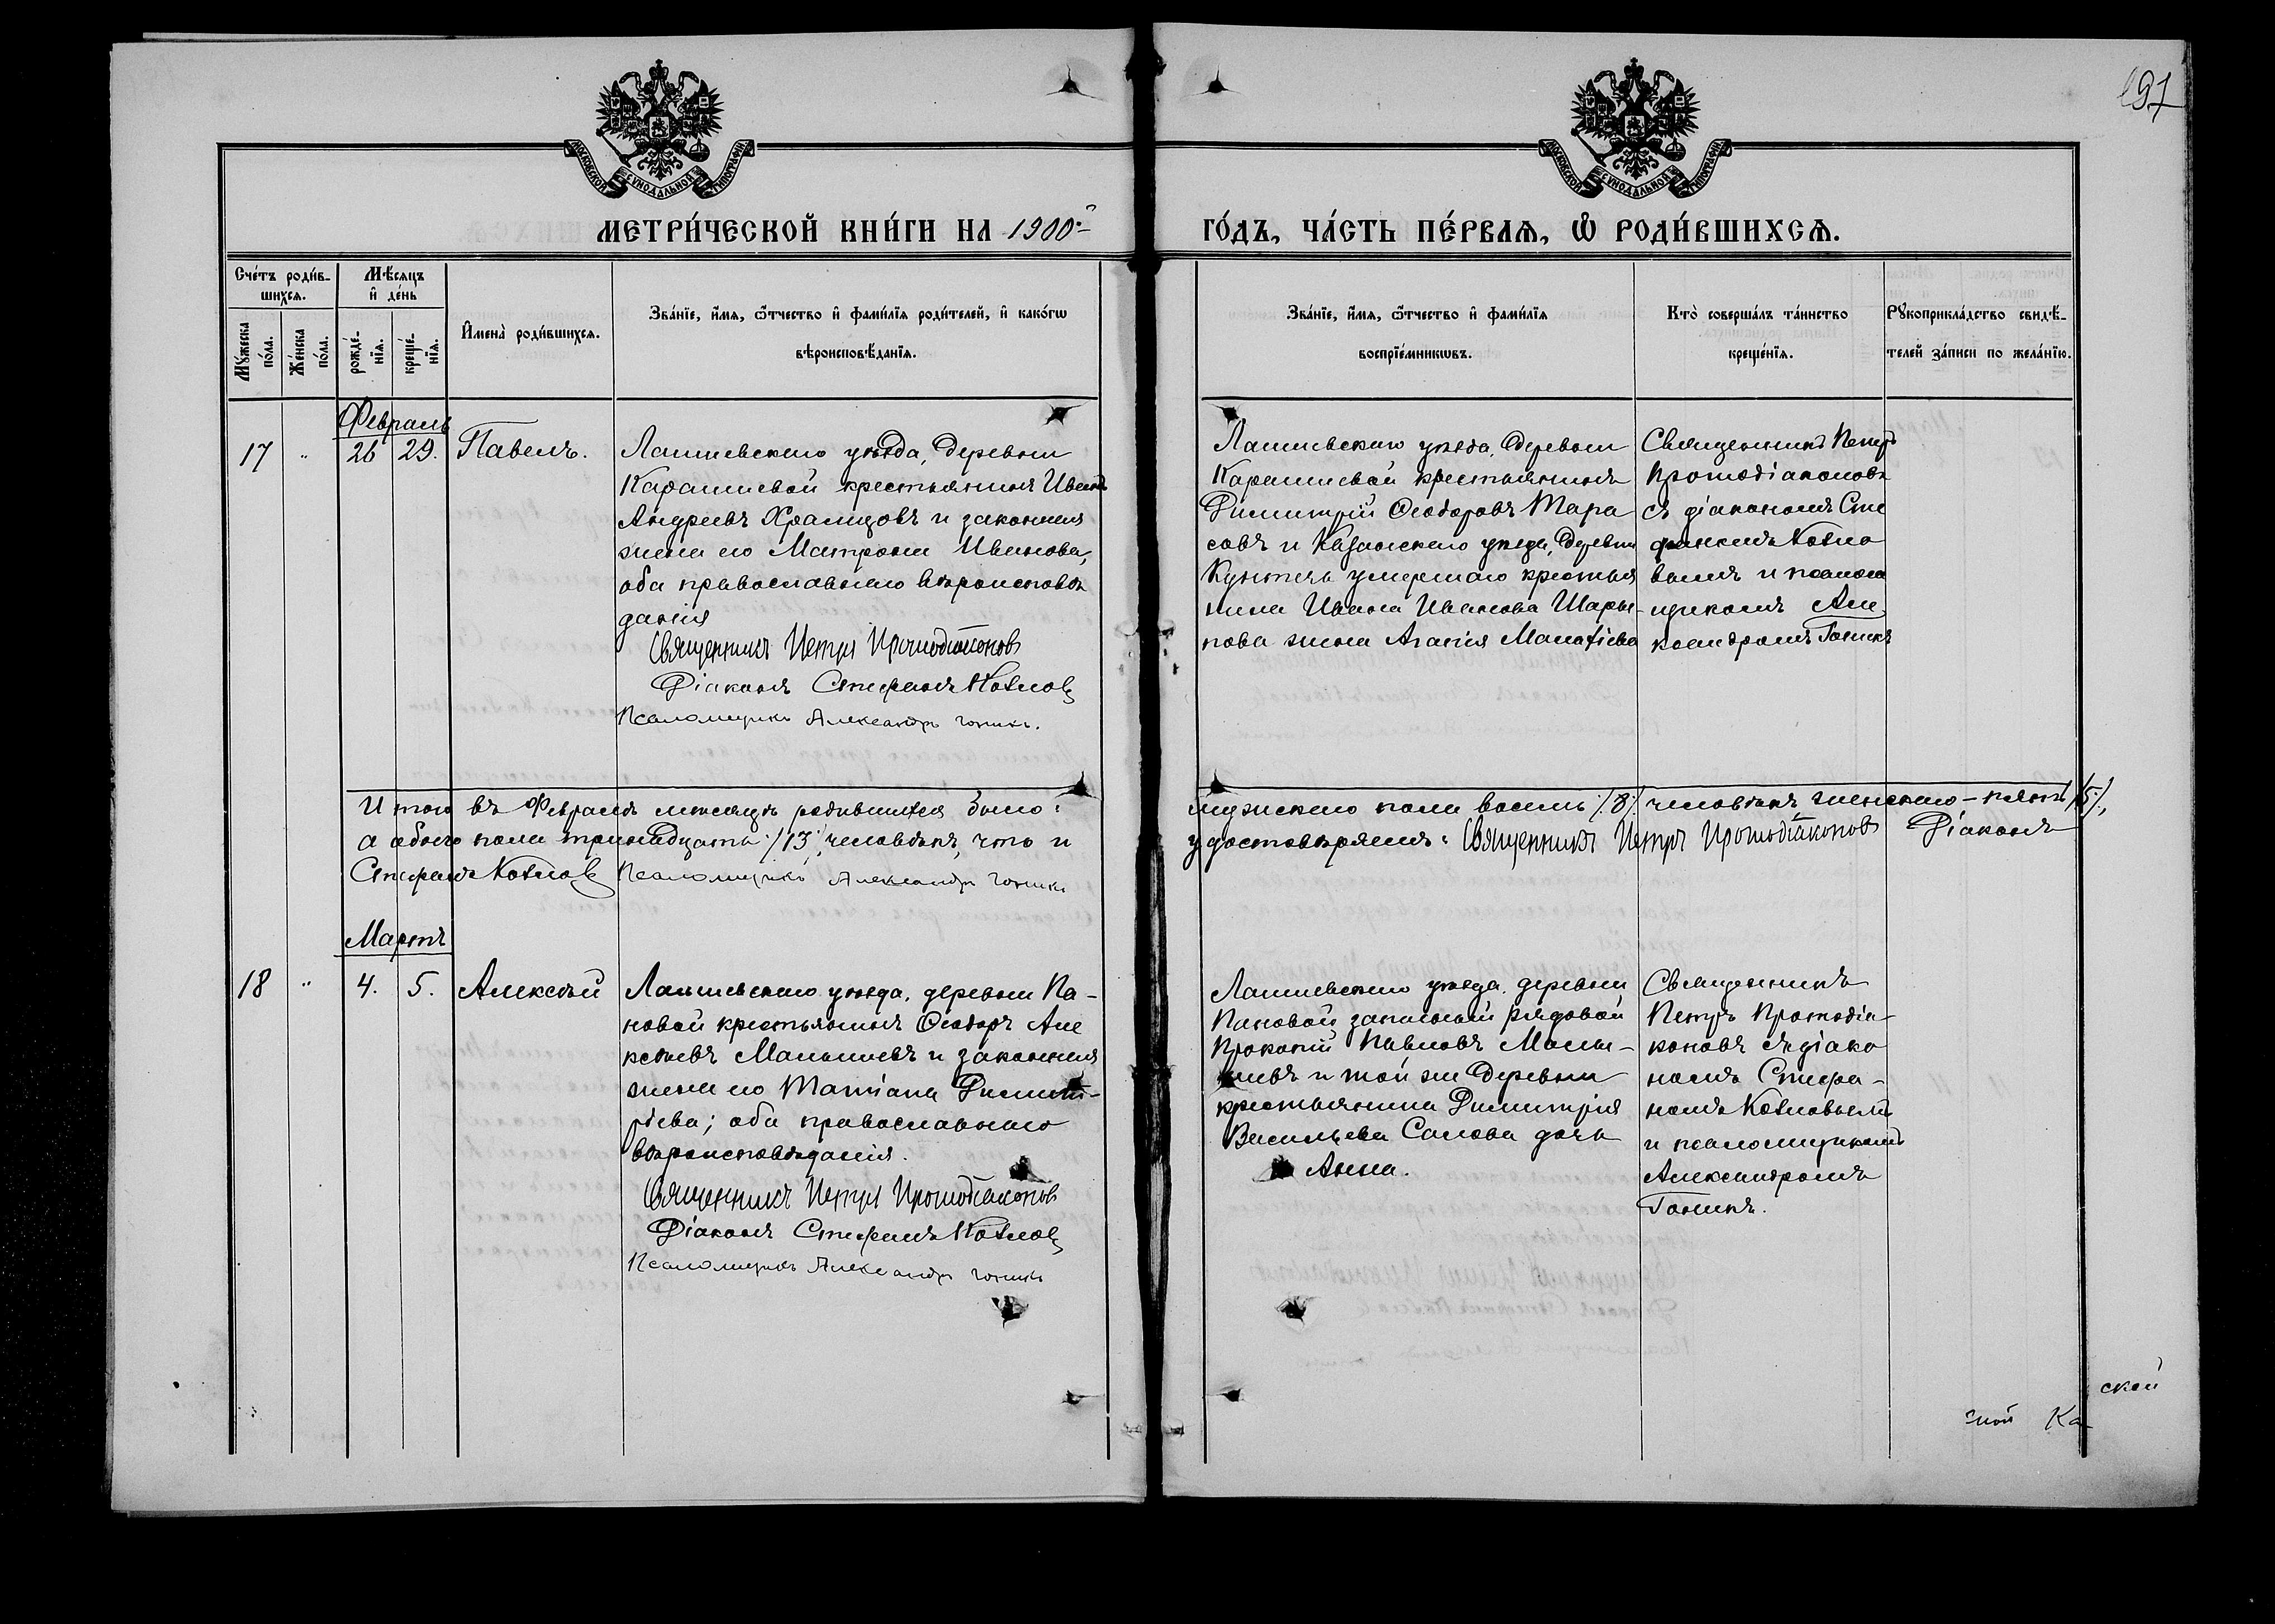 197
МОСКОВСКОЙ СѴНОДАЛЬНОЙ ТИПОГРАФІИ
МОСКОВСКОЙ СѴНОДАЛЬНОЙ ТИПОГРАФІИ
МЕТРИ́ЧЕСКОЙ КНИ́ГИ НА 1900-й
ГО́ДЪ, ЧА́СТЬ ПЕ́РВАѦ, Ѡ҆ РОДИ́ВШИХСѦ.
Сче́тъ роди́в-
шихсѧ.
Мꙋ́жеска по́ла.
Же́нска по́ла.
Мѣ́сѧцъ
и҆ де́нь
рожде́-
нїѧ.
креще́-
нїѧ.
И҆мена̀ роди́вшихсѧ.
Зва́нїе, и҆́мѧ, ѻ҆́тчество и҆ фами́лїѧ роди́телей, и҆ како́гѡ
вѣроисповѣ́данїѧ.
Зва́нїе, и҆́мѧ, ѻ҆́тчество и҆ фами́лїѧ
воспрїе́мникѡвъ.
Кто̀ соверша́лъ та́инство
креще́нїѧ.
Рꙋкоприкла́дство свидѣ́-
телей за́писи по жела́нїю.
Февраль
17 " 26 29. Павелъ.
Лаишевскаго уѣзда, деревни
Карашевой крестьянинъ Иванъ
Андреевъ Храмцовъ и законная
жена его Матрона Иванова,
оба православнаго вѣроисповѣ
данія
Священникъ Петръ Протодіаконовъ
Діаконъ Стефанъ Котловъ
Псаломщикъ Александръ Гоникъ.
Лаишевскаго уѣзда, деревни
Карашевой крестьянинъ
Димитрій Ѳеодоровъ Тара
совъ и Казанскаго уѣзда, деревни
умершаго крестья
нина Ивана Иванова Шары-
пова жена Агапія
Священникъ Петръ
Протодіаконовъ
съ діакономъ Сте
фаномъ Котло
вымъ и псалом
щикомъ Але
ксандромъ Гоникъ
Итого въ Февралѣ мѣсяцѣ родившихся было:
мужскаго пола восемь /8/ человѣкъ, женскаго - пять /5/,
а обоего пола тринадцать /13/, человѣкъ, что и
удостовѣряемъ: Священникъ Петръ Протодіаконовъ Діаконъ
Стефанъ Котловъ Псаломщикъ Александръ Гоникъ
Мартъ
18 " 4. 5. Алексѣй
Лаишевскаго уѣзда, деревни Па-
новой крестьянинъ Ѳеодоръ Але
ксѣевъ Малышевъ и законная
жена его Татіана Димит-
ріева; оба православнаго
вѣроисповѣданія.
Священникъ Петръ Протодіаконовъ
Діаконъ Стефанъ Котловъ
Псаломщикъ Александръ Гоникъ
Лаишевскаго уѣзда деревни
Пановой запасный рядовой
Прокопій Павловъ Малы-
шевъ и той же деревни
крестьянина Димитрія
Васильева Салова дочь
Анна.
Священникъ
Петръ Протодіа-
коновъ съ діако
номъ Стефа-
номъ Котловымъ
и псаломщикомъ
Александромъ
Гоникъ.
ской
ной Ка